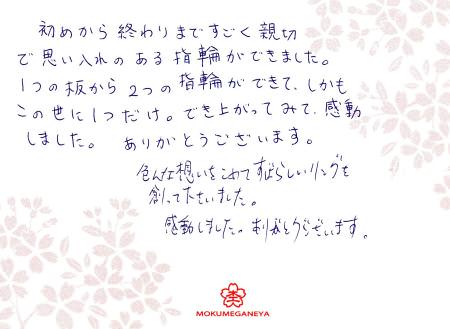 初めから終わりまですごく親切
で思い入れのある指輪ができました。
1つの板から2つの指輪ができて、しかも
この世に1つだけ。でき上がってみて、感動
しました。ありがとうございます。
色んな想いをこめてすばらしいリングを
創って下さいました。
感動しました。ありがとうございます。
MOKUMEGANEYA